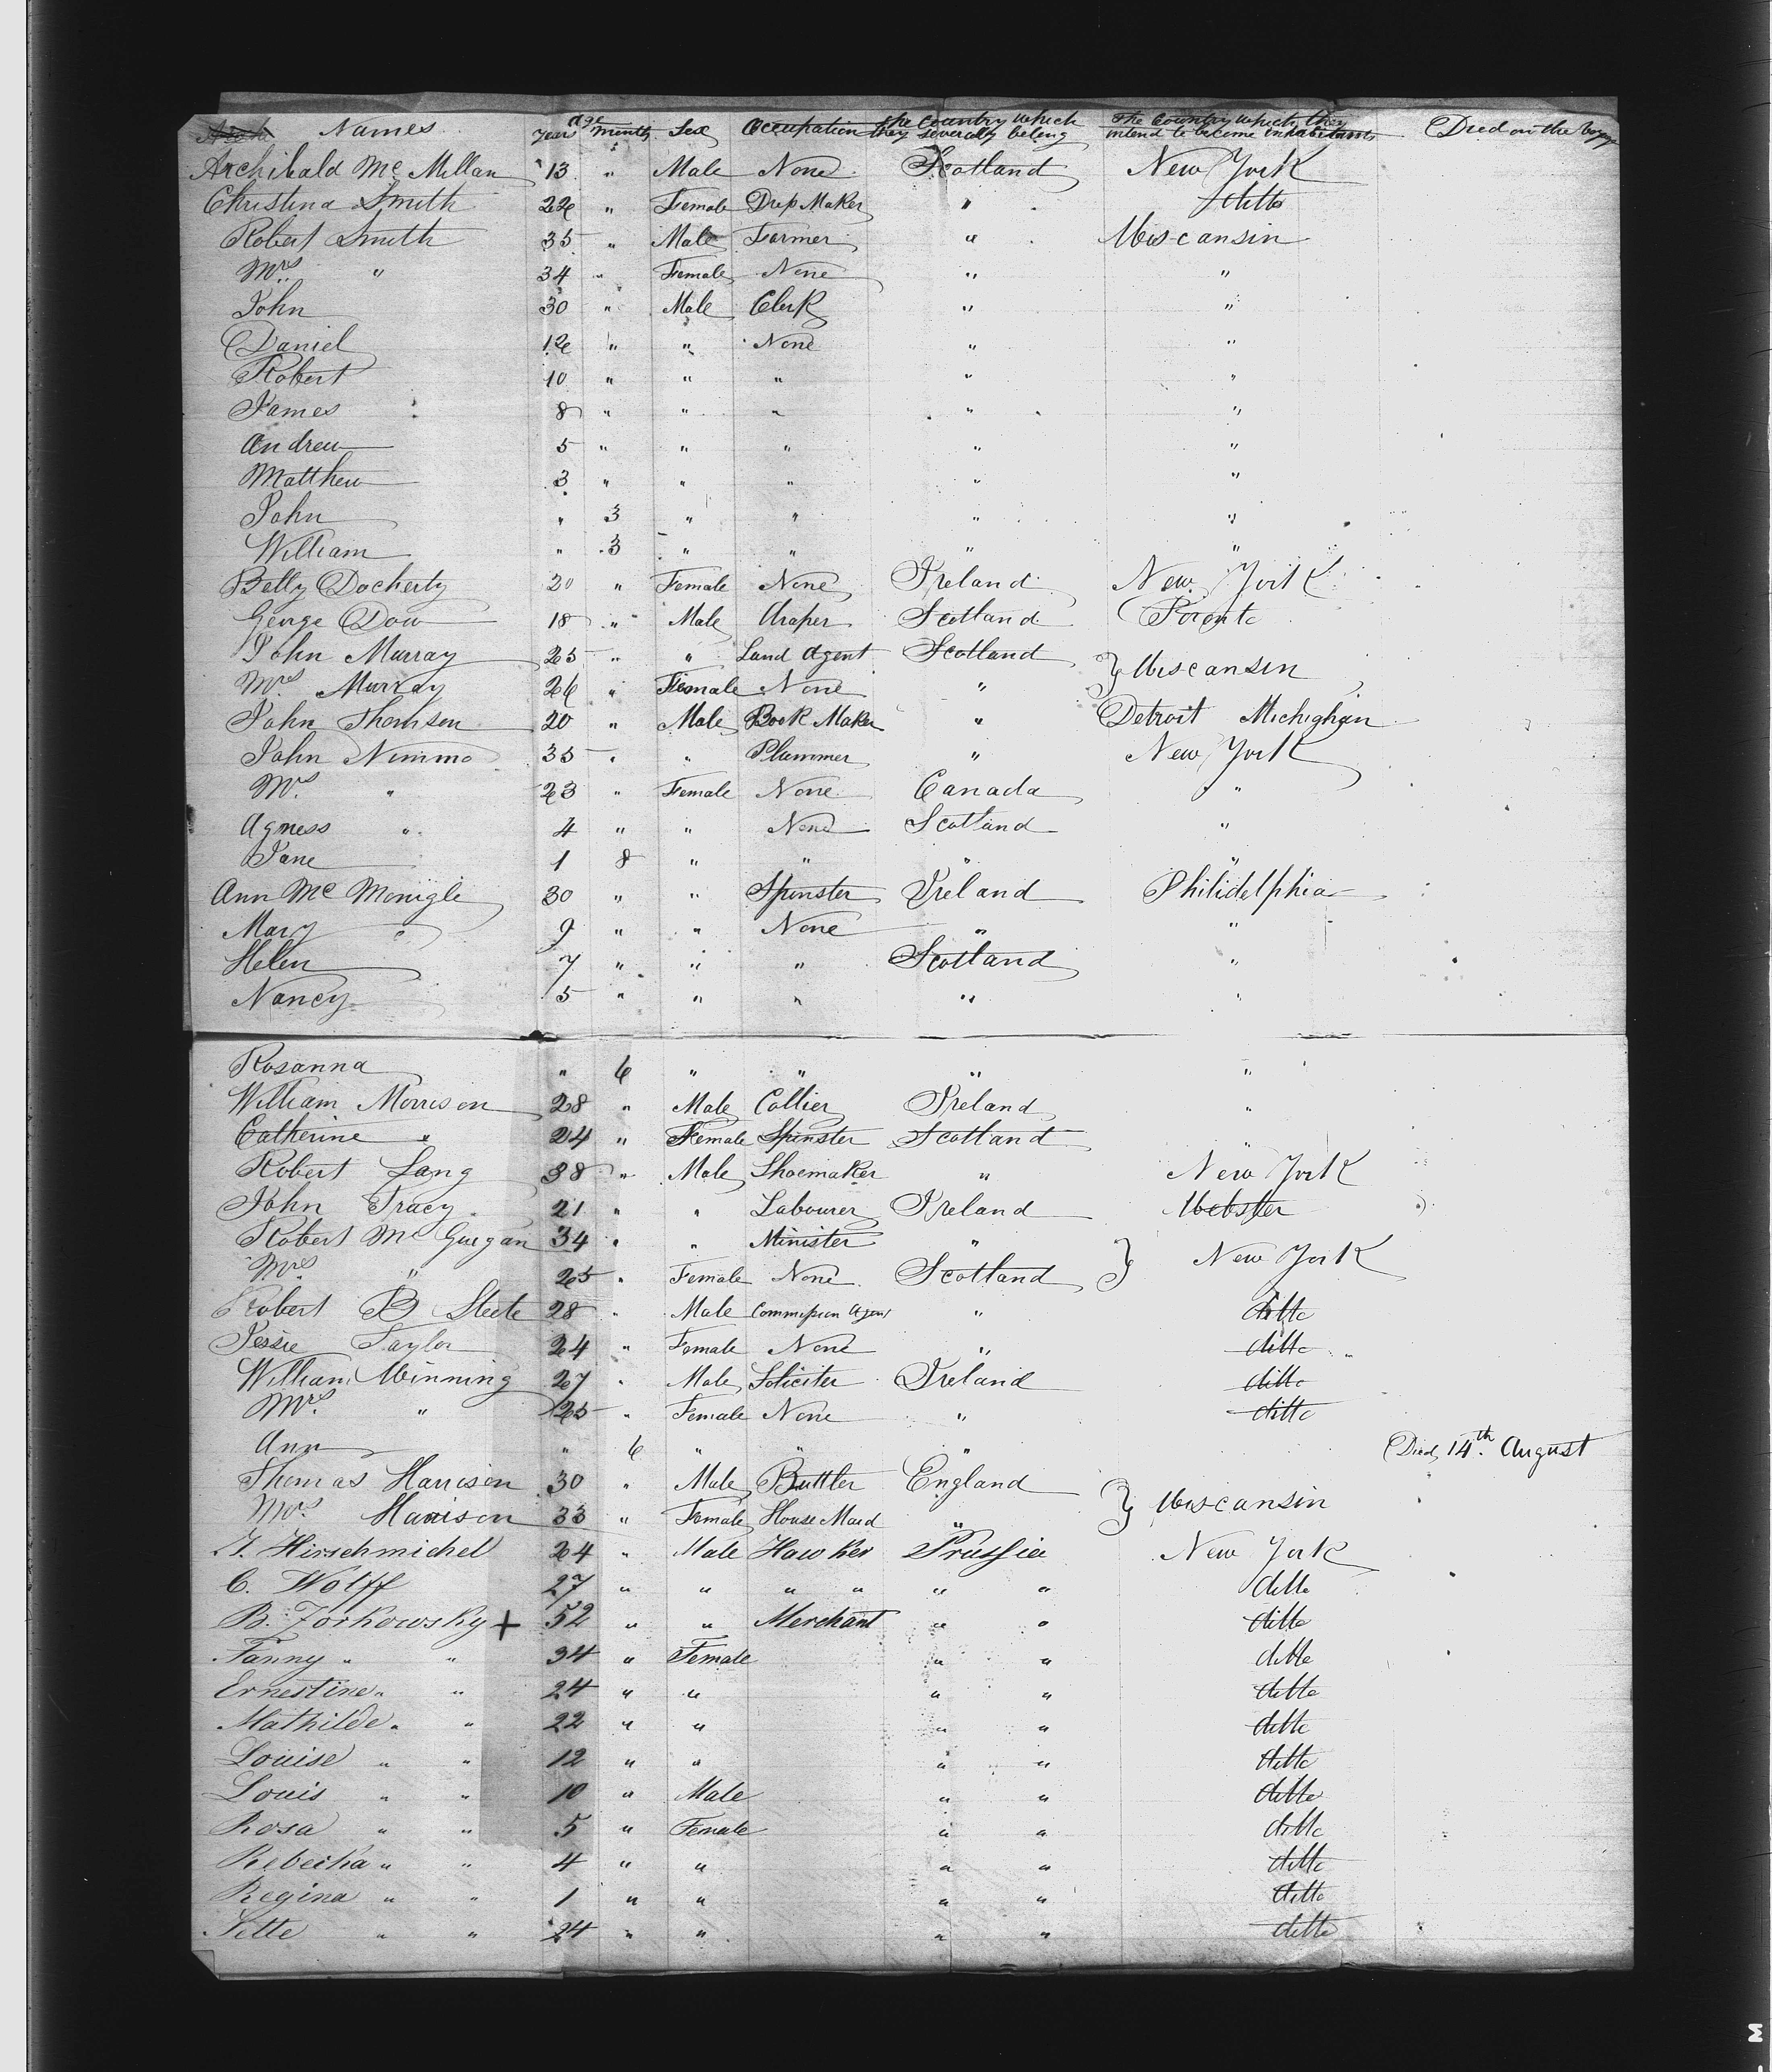 Names age years month Sex Occupation the Country which they severally belong the Country which they intend to become inhabitants Died on the Voyage
Archibald Mc Millan 13 " Male None Scotland New York
Christina Smith 22 " Female Dress Maker " ditto
Robert Smith 35 " Male Farmer " Wiscansin
Mrs " 34 " Female None " "
John 30 " Male Clerk " "
Daniel 12 " " None " "
Robert 10 " " " " "
James 8 " " " " "
Andrew 5 " " " " "
Matthew 3 " " " " "
John " 3 " " " "
William " 3 " " " "
Betty Docherty 30 " Female None Ireland New York
George Dow 18 " Male Draper Scotland Toronto
John Murray 25 " " Land Agent Scotland } Wiscansin
Mrs Murray 26 " Female None "
John Thomson 20 " Male Book Maker " Detroit Michighan
John Nimmo 35 " " Plummer " New York
Mrs " 23 " Female None Canada "
Agness " 4 " " None Scotland "
Jane 1 8 " " " "
Ann Mc Monigle 30 " " Spinster Ireland Philidelphia
Mary " 9 " " None " "
Helen 7 " " " Scotland "
Nancy 5 " " " " "
Rosanna " 6 " " " "
William Morrison 28 " Male Collier Ireland "
Catherine " 24 " Female Spinster Scotland "
Robert Lang 38 " Male Shoemaker " New York
John Tracy 21 " " Labourer Ireland Webster
Robert Mc Guigan 34 " " Minister " } New York
Mrs " 25 " Female None Scotland
Robert B Steele 28 " Male Commission Agent " ditto
Jessie Taylor 24 " Female None " ditto
William Winning 27 " Male Soliciter Ireland ditto
Mrs " 25 " Female None " ditto
Ann " 6 " " " Died 14th August
Thomas Harrison 30 " Male Buttler England } Wiscansin
Mrs Harrison 33 " Female House Maid "
J. Hirschmichel 24 " Male Hawker Prussia New York
C. Wolff 27 " " " " " " ditto
B. Zorkowsky + 52 " " Merchant " " ditto
Fanny " " 34 " Female " " ditto
Ernestine " " 24 " " " " ditto
Mathilde " " 22 " " " " ditto
Louise " " 12 " " " " ditto
Louis " " 10 " Male " " ditto
Rosa " " 5 " Female " " ditto
Rebecka " " 4 " " " " ditto
Regina " " 1 " " " " ditto
Jette " " 24 " " " " ditto